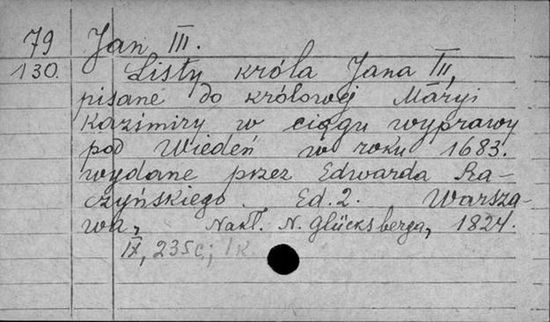 79 Jan III.
130. Listy króla Jana III,
pisane do królowej Maryi
Kazimiry w ciągu wyprawy
pod Wiedeń w roku 1683.
wydane przez Edwarda Ra-
czyńskiego. Ed. 2. Warsza-
wa, Nakł. N. Glücksberga, 1824.
IX, 235c; 1k.